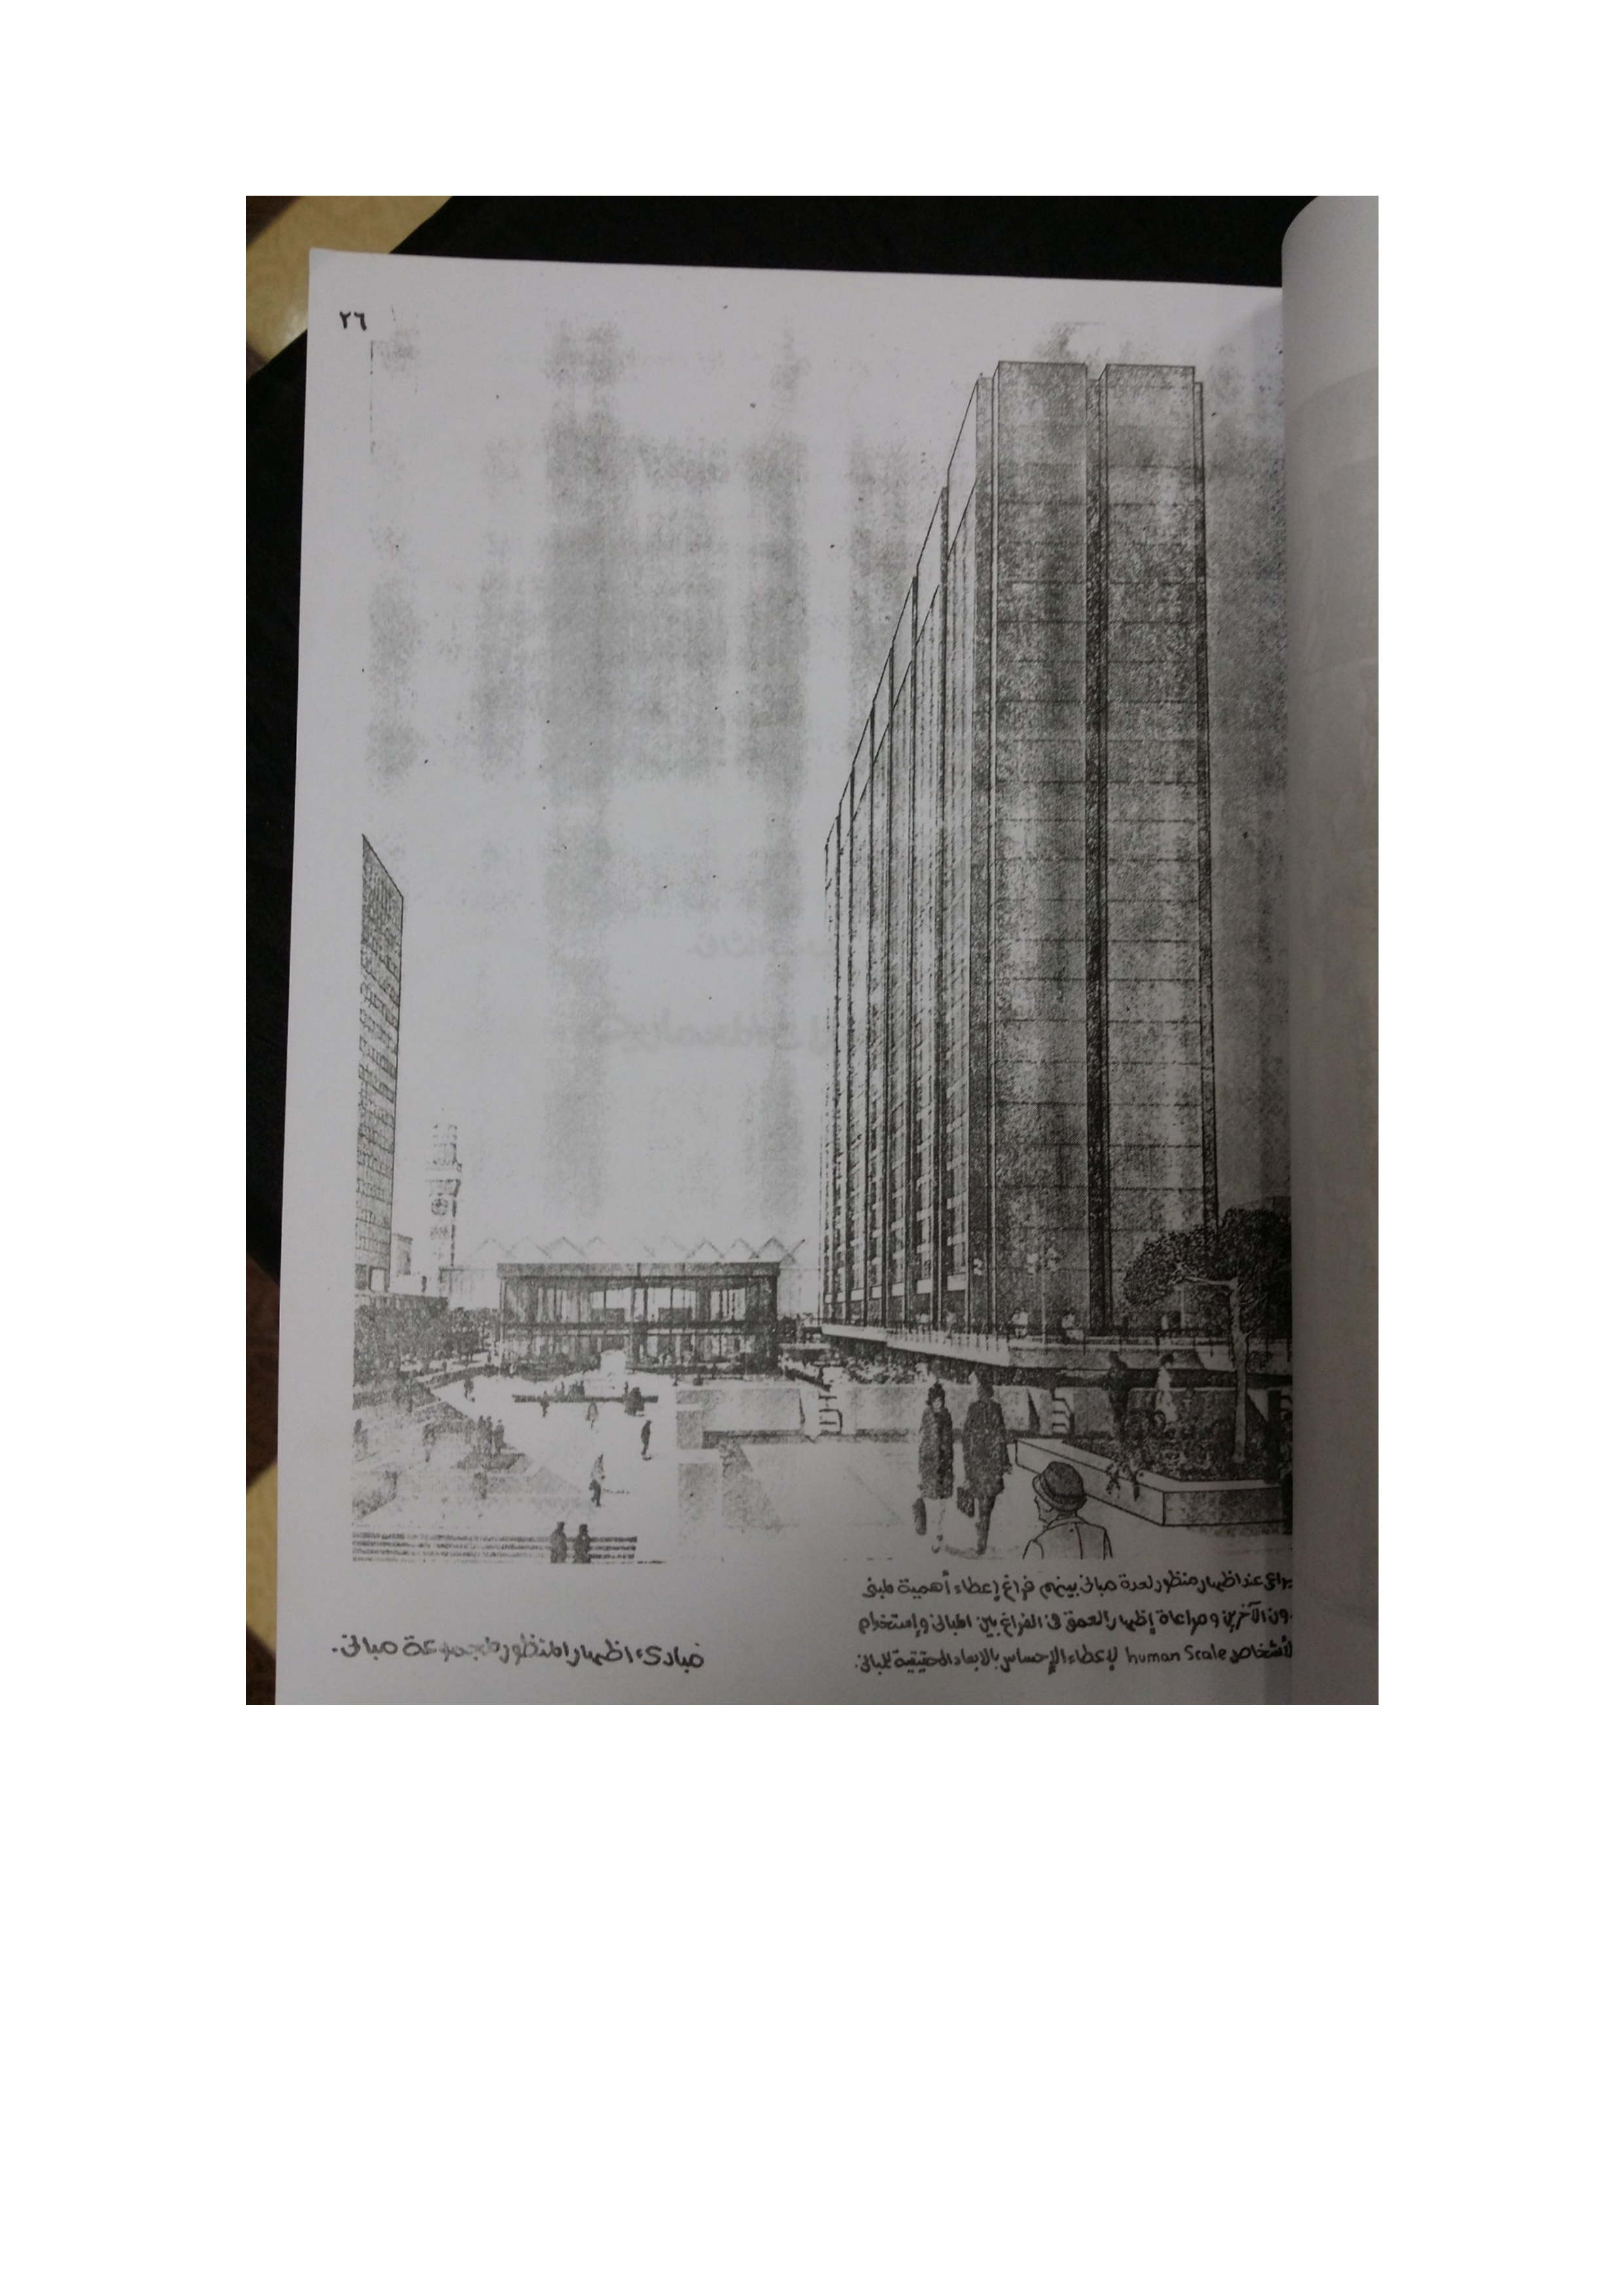 ٢٦
يراعى عند اظهار منظور لعدة مبانى بينهم فراغ إعطاء أهمية لمبنى
دون الآخرين و مراعاة إظهار العمق فى الفراغ بين المبانى وإستخدام
الأشخاص human Scale لإعطاء الإحساس بالابعاد الحقيقية للمبانى.
مبادىء اظهار المنظور لمجموعة مبانى.